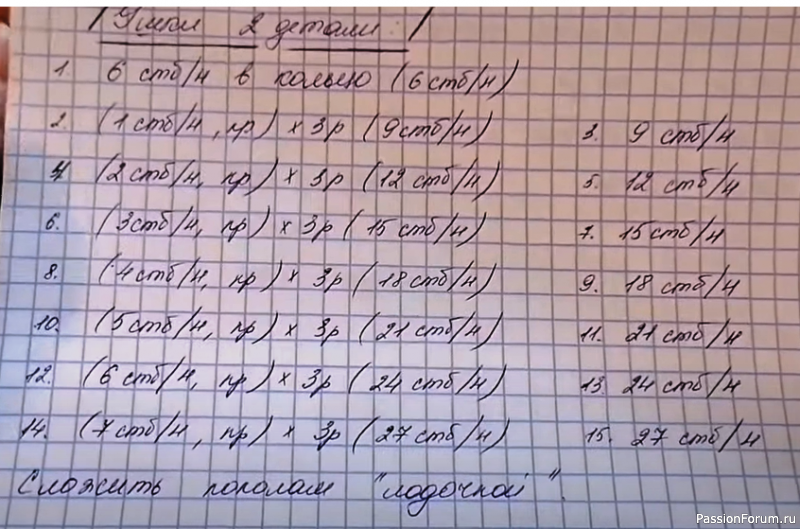 Ушки 2 детали:
1. 6 стб/н в кольцо (6 стб/н)
2. (1 стб/н, пр) × 3р (9 стб/н) 3. 9 стб/н
4. (2 стб/н, пр) × 3р (12 стб/н) 5. 12 стб/н
6. (3 стб/н, пр) × 3р (15 стб/н) 7. 15 стб/н
8. (4 стб/н, пр) × 3р (18 стб/н) 9. 18 стб/н
10. (5 стб/н, пр) × 3р (21 стб/н) 11. 21 стб/н
12. (6 стб/н, пр) × 3р (24 стб/н) 13. 24 стб/н
14. (7 стб/н, пр) × 3р (27 стб/н) 15. 27 стб/н
Сложить пополам "лодочкой".
PassionForum.ru